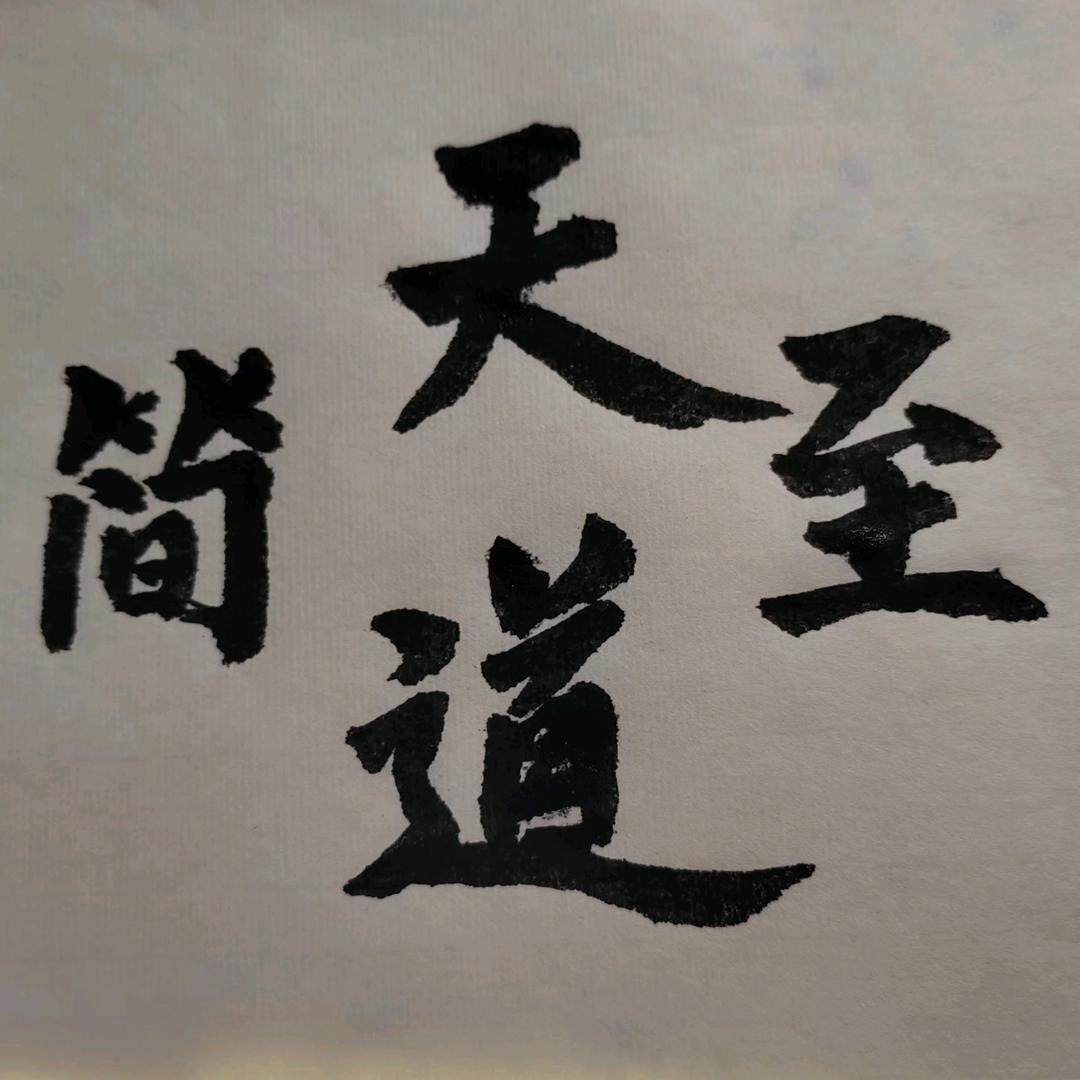 天道
至简